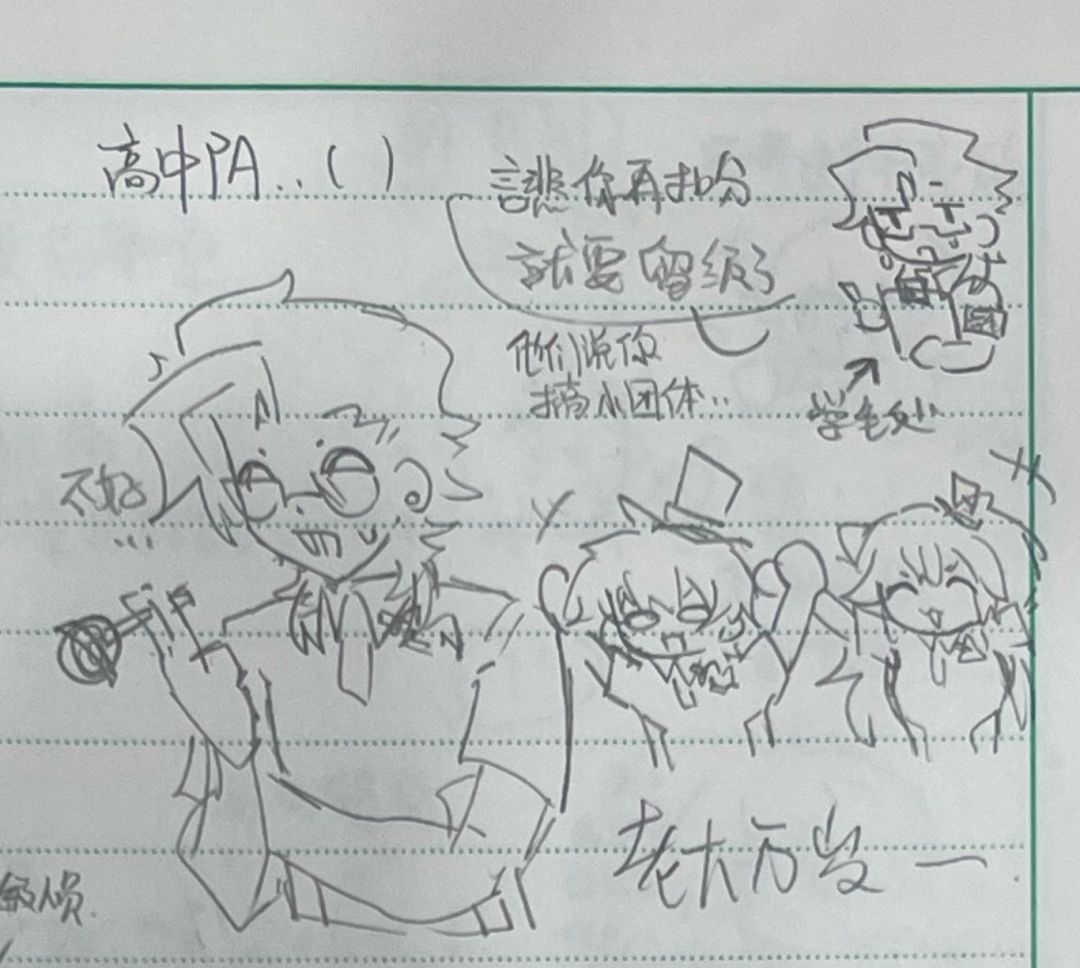 高中PA..( )
讓你再扣分
就要留级了
他们说你
搞小团体..
学生处
不好
...
老大万岁一
级人员